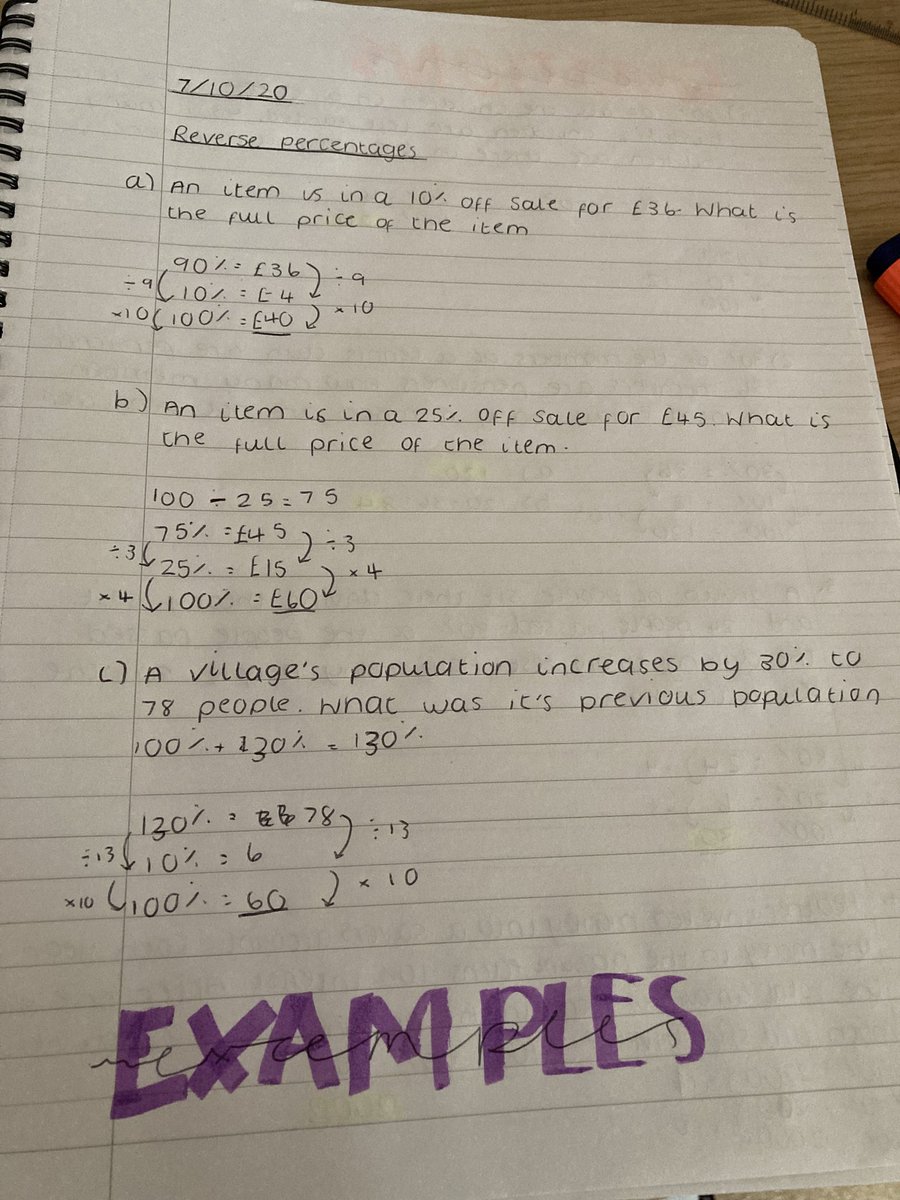 7/10/20
Reverse percentages
a) An item is in a 10% off sale for £36. What is
the full price of the item
90% = £36
÷9 ÷9
10% = £4
×10 100% = £40 ×10
b) An item is in a 25% off sale for £45. What is
the full price of the item.
100 - 25 = 75
75% = £45
÷3 ÷3
25% = £15 ×4
×4 100% = £60
c) A village's population increases by 30% to
78 people. What was it's previous population
100% + 130% = 130%
130% = 78
÷13 ÷13
10% = 6
×10 100% = 60 ×10
EXAMPLES
examples